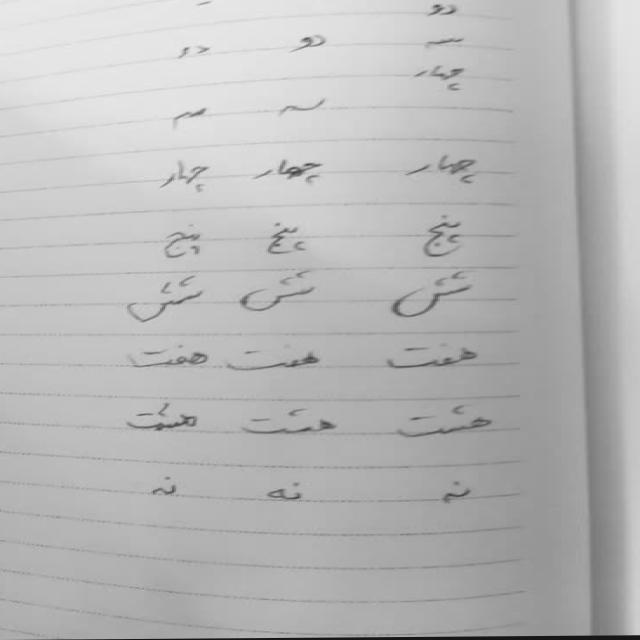 دو
دو دو سه
چهار
سه سه
چهار چهار چهار
پنج پنج پنج
شش شش شش
هفت هفت هفت
هشت هشت هشت
نه نه نه